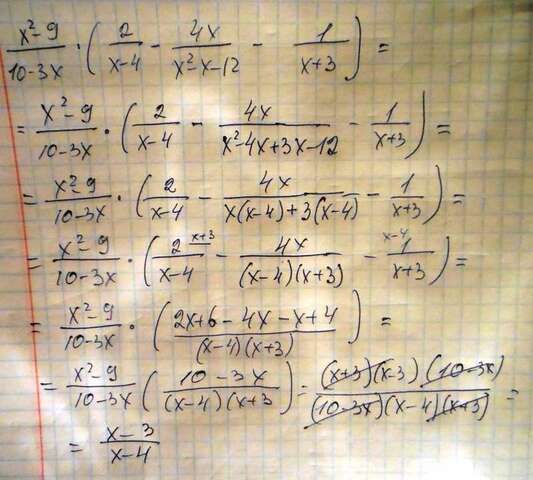 x²-9/10-3x · (2/x-4 - 4x/x²-x-12 - 1/x+3) =
= x²-9/10-3x · (2/x-4 - 4x/x²-4x+3x-12 - 1/x+3) =
= x²-9/10-3x · (2/x-4 - 4x/x(x-4)+3(x-4) - 1/x+3) =
= x²-9/10-3x · (2 x+3/x-4 - 4x/(x-4)(x+3) - x-4 1/x+3) =
= x²-9/10-3x · (2x+6-4x-x+4/(x-4)(x+3)) =
= x²-9/10-3x (10-3x/(x-4)(x+3) = (x+3)(x-3)(10-3x)/(10-3x)(x-4)(x+3) =
= x-3/x-4